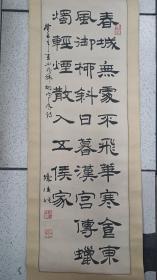 春城無處不飛華寒食東
風御柳斜日暮漢宮傳蠟
燭輕煙散入五侯家